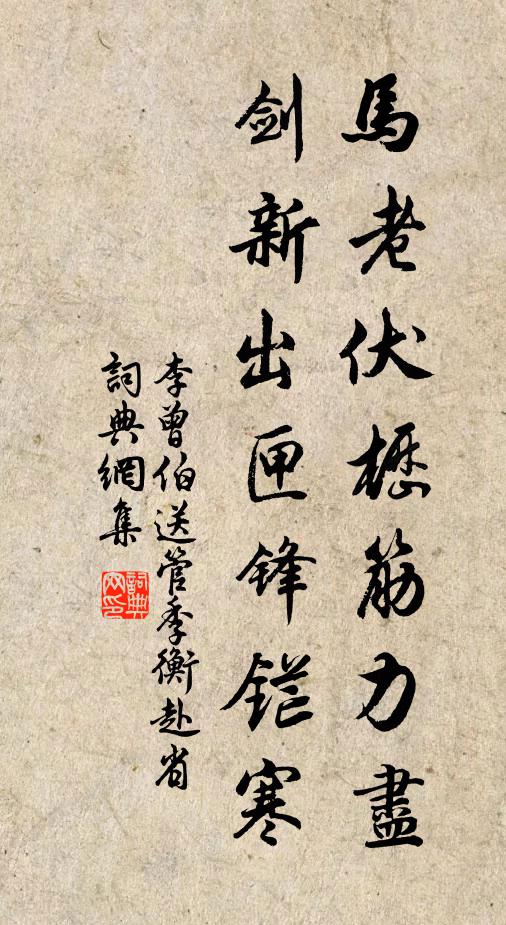 馬老伏櫪筋力盡
剑新出匣锋铓寒
李曾伯送管季衡赴省
詞典網集
詞典网印